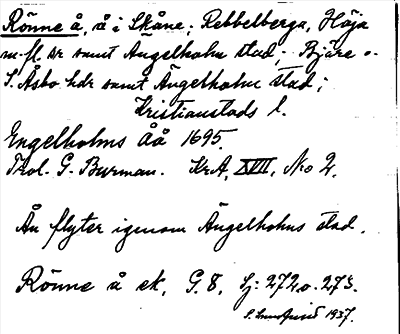 Rönne å, å i Skåne; Rebbelberga, Höja
m. fl. sr samt Ängelholm stad; Bjäre o.
S. Åsbo hdr samt Ängelholm stad;
Kristianstads l.
Engelholms Åå 1695.
G. Burman. KrA, XVIII, No 2.
Ån flyter igenom Ängelholms stad.
Rönne å ek. G. 8, Sj: 272 o. 273.
1937.